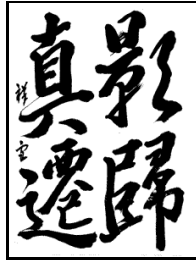 影歸
真遷
祥雲